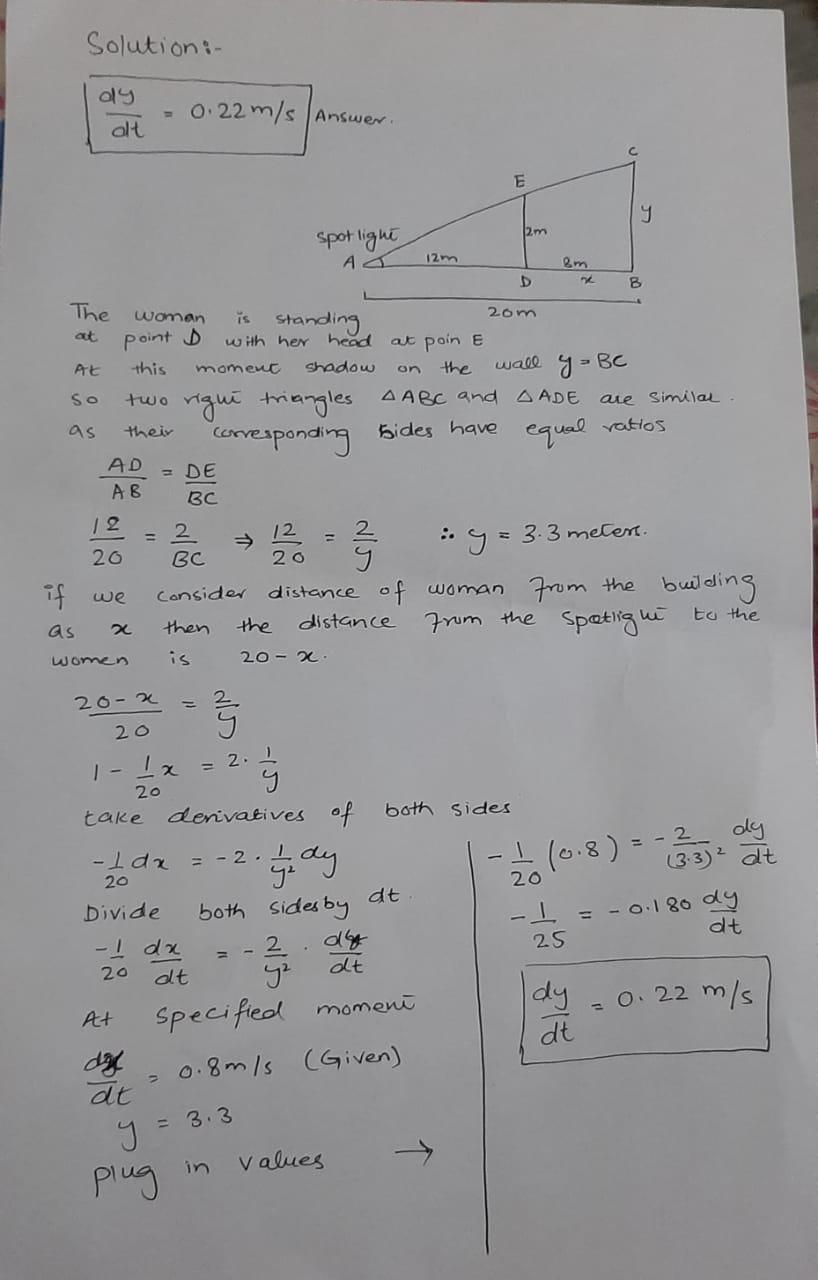 Solution:-
dy/dt = 0.22 m/s Answer.
C
E
y
2m
spotlight
A
12m
8m
D
x
B
20m
The woman is standing
at point D with her head at poin E
At this moment shadow on the wall y = BC
so two right triangles △ABC and △ADE are similar.
as their corresponding sides have equal ratios
AD/AB = DE/BC
12/20 = 2/BC ⇒ 12/20 = 2/y ∴ y = 3.3 meters.
if we consider distance of woman from the building
as x then the distance from the spotlight to the
women is 20 - x.
20-x/20 = 2/y
1 - 1/20 x = 2. 1/y
take derivatives of both sides
-1/20 dx = -2. 1/y² dy
Divide both sides by dt.
-1/20 dx/dt = -2/y² . dy/dt
At specified moment
dx/dt = 0.8m/s (Given)
y = 3.3
plug in values →
-1/20 (0.8) = -2/(3.3)² dy/dt
-1/25 = -0.180 dy/dt
dy/dt = 0.22 m/s